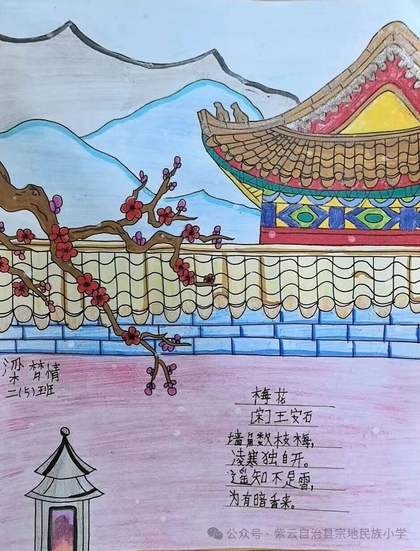 梁梦情
二(5)班
梅花
[宋]王安石
墙角数枝梅,
凌寒独自开。
遥知不是雪,
为有暗香来。
公众号 · 紫云自治县宗地民族小学